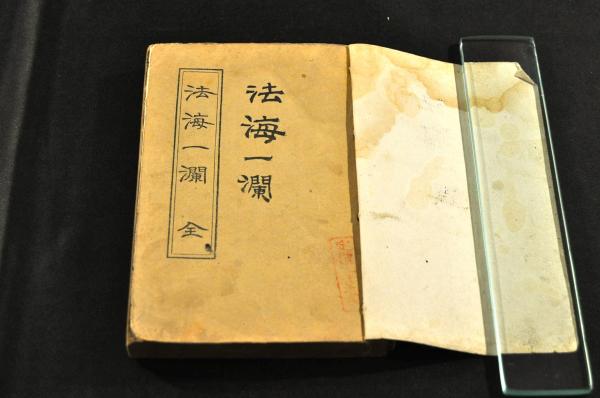 法海一瀾
法海一瀾 全